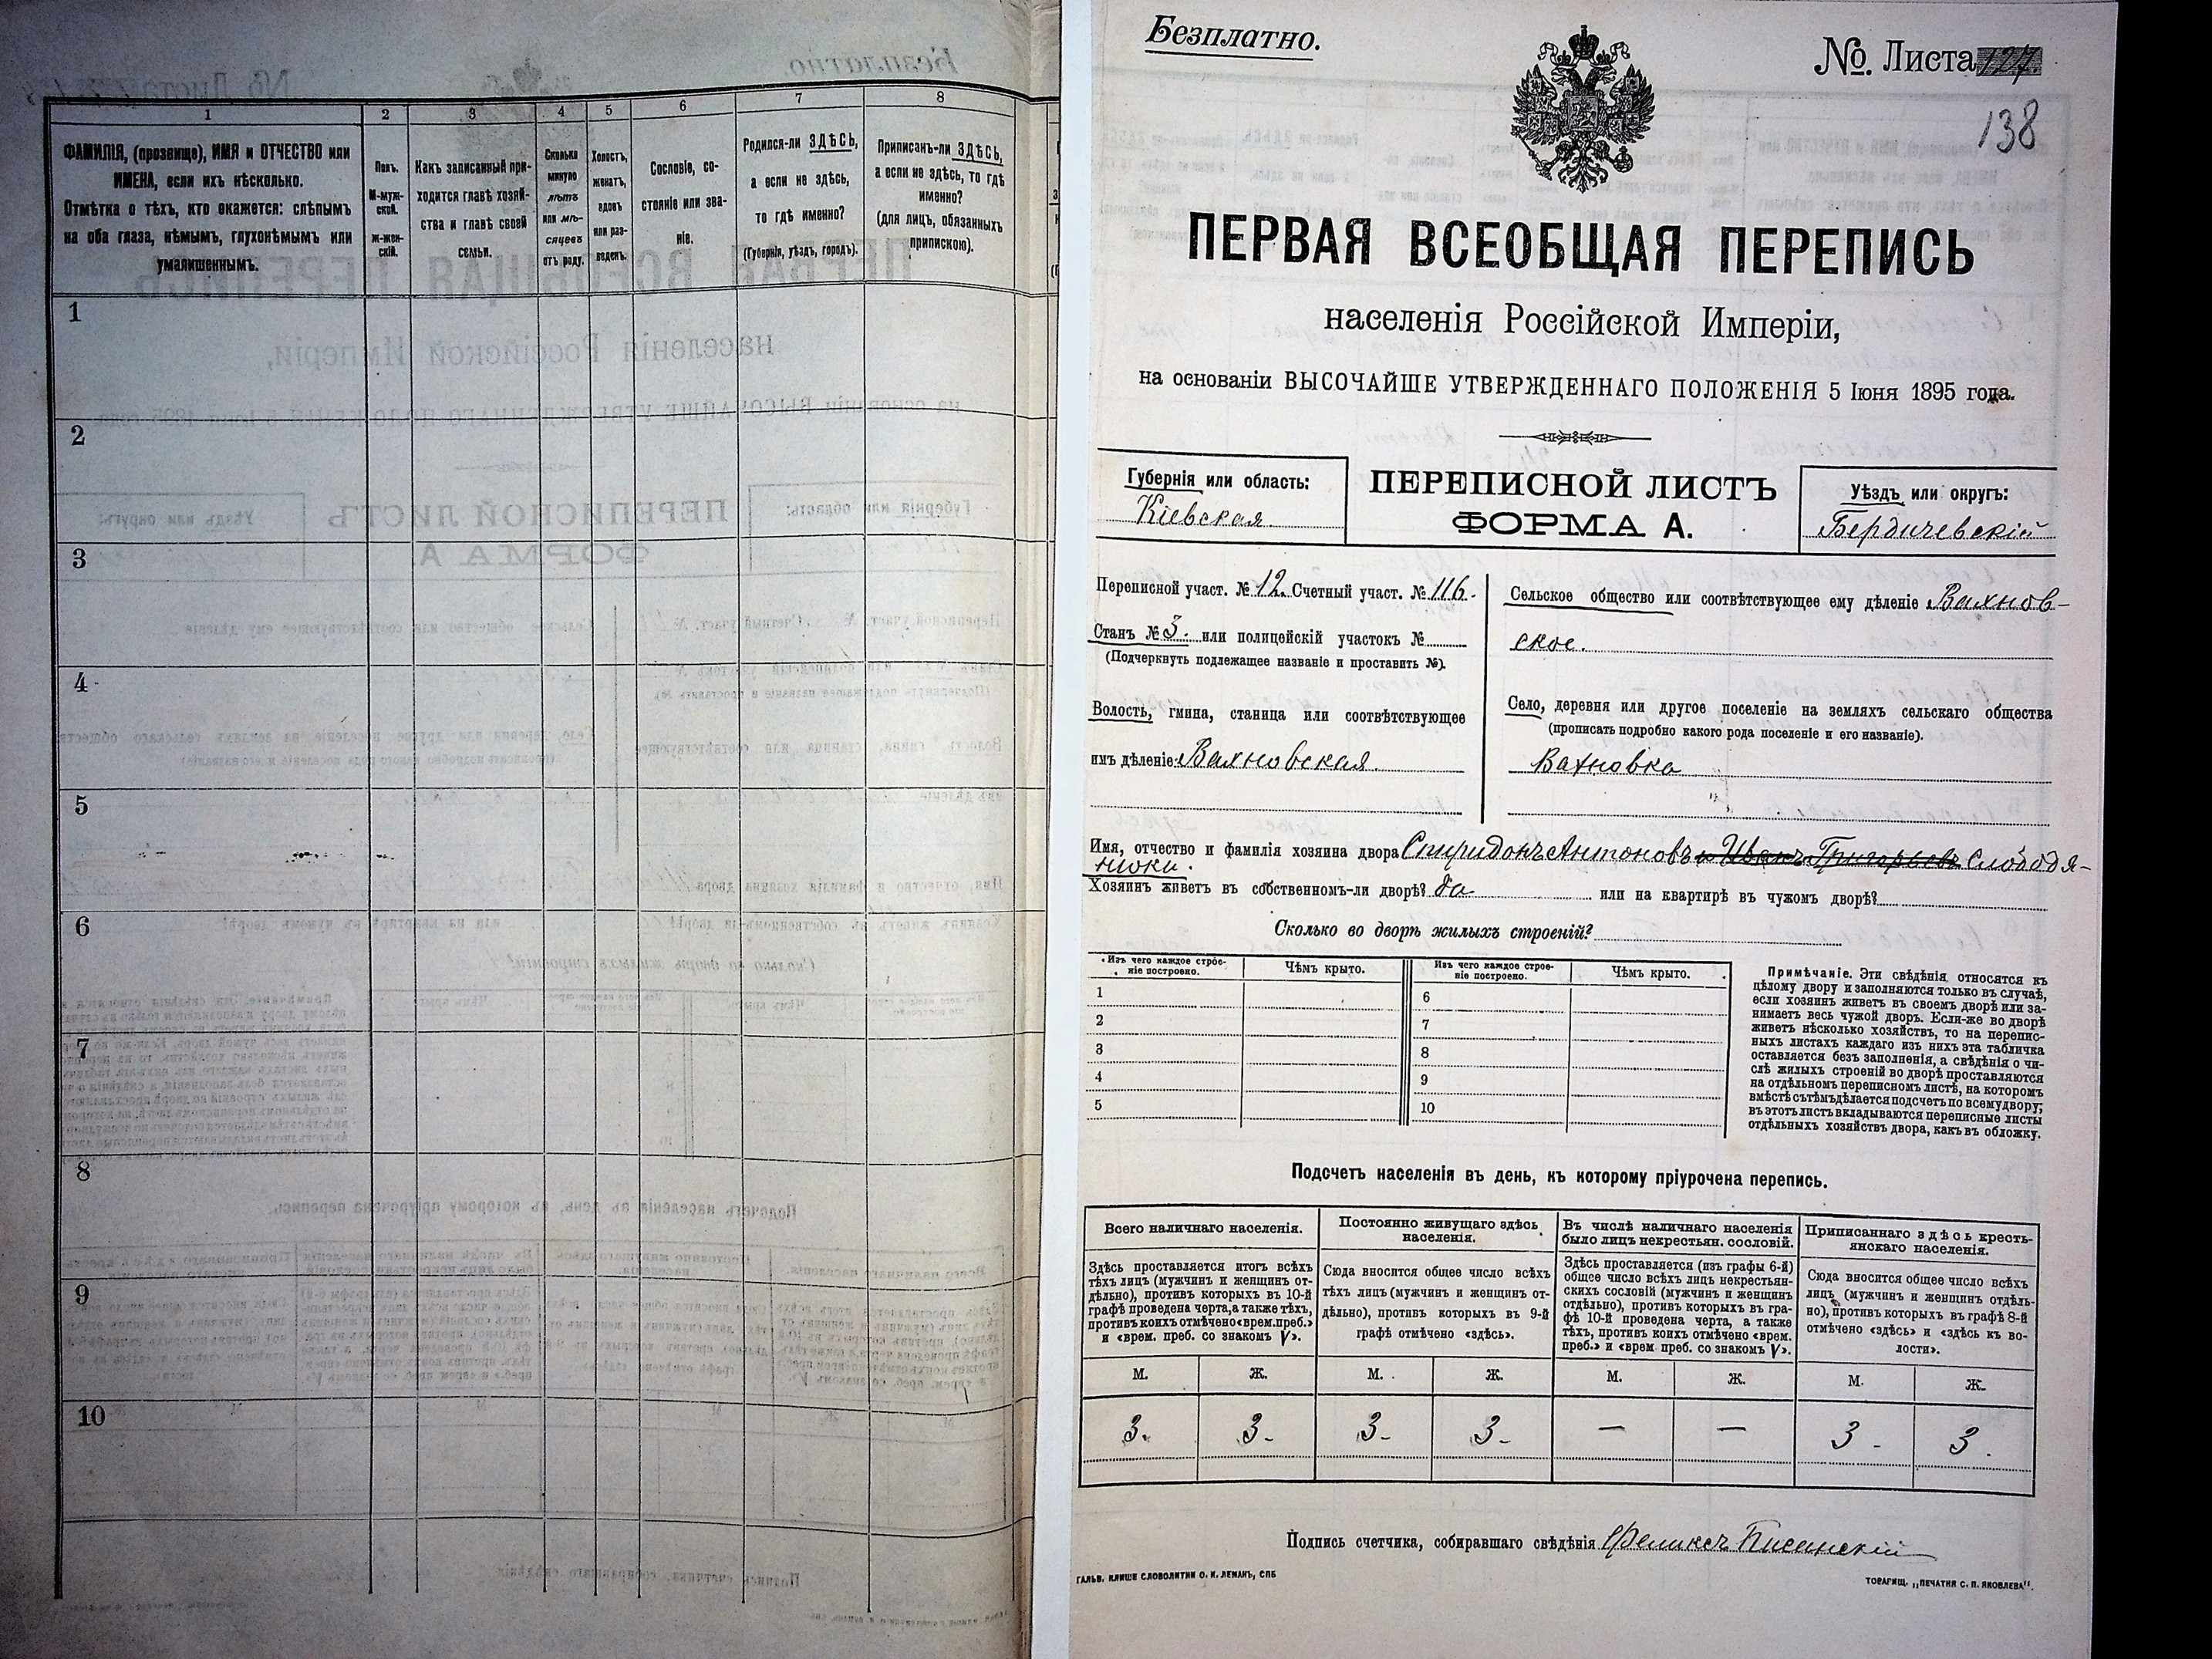 1
2
3
4
5
6
7
8
ФАМИЛІЯ, (прозвище), ИМЯ и ОТЧЕСТВО или
ИМЕНА, если ихъ нѣсколько.
Отмѣтка о тѣхъ, кто окажется: слѣпымъ
на оба глаза, нѣмымъ, глухонѣмымъ или
умалишеннымъ.
Полъ.
М-муж-
ской.
ж-жен-
скій.
Какъ записанный при-
ходится главѣ хозяй-
ства и главѣ своей
семьи.
Сколько
минуло
лѣтъ
или мѣ-
сяцевъ
отъ роду.
Холостъ,
женатъ,
вдовъ
или раз-
веденъ.
Сословіе, со-
стояніе или зва-
ніе.
Родился-ли ЗДѢСЬ,
а если не здѣсь,
то гдѣ именно?
(Губернія, уѣздъ, городъ).
Приписанъ-ли ЗДѢСЬ,
а если не здѣсь, то гдѣ
именно?
(для лицъ, обязанныхъ
припискою).
1
2
3
4
5
6
7
8
9
10
Безплатно.
№ Листа 127
138
ПЕРВАЯ ВСЕОБЩАЯ ПЕРЕПИСЬ
населенія Россійской Имперіи,
на основаніи ВЫСОЧАЙШЕ УТВЕРЖДЕННАГО ПОЛОЖЕНІЯ 5 Іюня 1895 года.
Губернія или область:
Кіевская
ПЕРЕПИСНОЙ ЛИСТЪ
ФОРМА А.
Уѣздъ или округъ:
Бердичевскій
Переписной участ. № 12. Счетный участ. № 116.
Станъ № 3. или полицейскій участокъ №
(Подчеркнуть подлежащее названіе и проставить №).
Волость, гмина, станица или соотвѣтствующее
имъ дѣленіе: Вахновская
Сельское общество или соотвѣтствующее ему дѣленіе Вахнов-
ское.
Село, деревня или другое поселеніе на земляхъ сельскаго общества
(прописать подробно какого рода поселеніе и его названіе).
Вахновка
Имя, отчество и фамилія хозяина двора Спиридонъ Антоновъ и Иванъ Григорьевъ Слободя-
нюки.
Хозяинъ живетъ въ собственномъ-ли дворѣ? да или на квартирѣ въ чужомъ дворѣ?
Сколько во дворѣ жилыхъ строеній?
Изъ чего каждое строе-
ніе построено.
Чѣмъ крыто.
Изъ чего каждое строе-
ніе построено.
Чѣмъ крыто.
1
2
3
4
5
6
7
8
9
10
Примѣчаніе. Эти свѣдѣнія относятся къ
цѣлому двору и заполняются только въ случаѣ,
если хозяинъ живетъ въ своемъ дворѣ или за-
нимаетъ весь чужой дворъ. Если-же во дворѣ
живетъ нѣсколько хозяйствъ, то на перепис-
ныхъ листахъ каждаго изъ нихъ эта табличка
оставляется безъ заполненія, а свѣдѣнія о чи-
слѣ жилыхъ строеній во дворѣ проставляются
на отдѣльномъ переписномъ листѣ, на которомъ
вмѣстѣ съ тѣмъ дѣлается подсчетъ по всему двору;
въ этотъ листъ вкладываются переписные листы
отдѣльныхъ хозяйствъ двора, какъ въ обложку.
Подсчетъ населенія въ день, къ которому пріурочена перепись.
Всего наличнаго населенія.
Постоянно живущаго здѣсь
населенія.
Въ числѣ наличнаго населенія
было лицъ некрестьян. сословій.
Приписаннаго здѣсь кресть-
янскаго населенія.
Здѣсь проставляется итогъ всѣхъ
тѣхъ лицъ (мужчинъ и женщинъ от-
дѣльно), противъ которыхъ въ 10-й
графѣ проведена черта, а также тѣхъ,
противъ коихъ отмѣчено «врем. преб.»
и «врем. преб. со знакомъ V».
Сюда вносится общее число всѣхъ
тѣхъ лицъ (мужчинъ и женщинъ от-
дѣльно), противъ которыхъ въ 9-й
графѣ отмѣчено «здѣсь».
Здѣсь проставляется (изъ графы 6-й)
общее число всѣхъ лицъ некрестьян-
скихъ сословій (мужчинъ и женщинъ
отдѣльно), противъ которыхъ въ гра-
фѣ 10-й проведена черта, а также
тѣхъ, противъ коихъ отмѣчено «врем.
преб.» и «врем преб. со знакомъ V».
Сюда вносится общее число всѣхъ
лицъ (мужчинъ и женщинъ отдѣль-
но), противъ которыхъ въ графѣ 8-й
отмѣчено «здѣсь» и «здѣсь къ во-
лости».
М.
Ж.
М.
Ж.
М.
Ж.
М.
Ж.
3.
3-
3-
3-
—
—
3-
3.
Подпись счетчика, собиравшаго свѣдѣнія Феликсъ
ГАЛЬВ. КЛИШЕ СЛОВОЛИТНИ О. И. ЛЕМАНЪ, СПБ
ТОВАРИЩ. „ПЕЧАТНЯ С. П. ЯКОВЛЕВА".